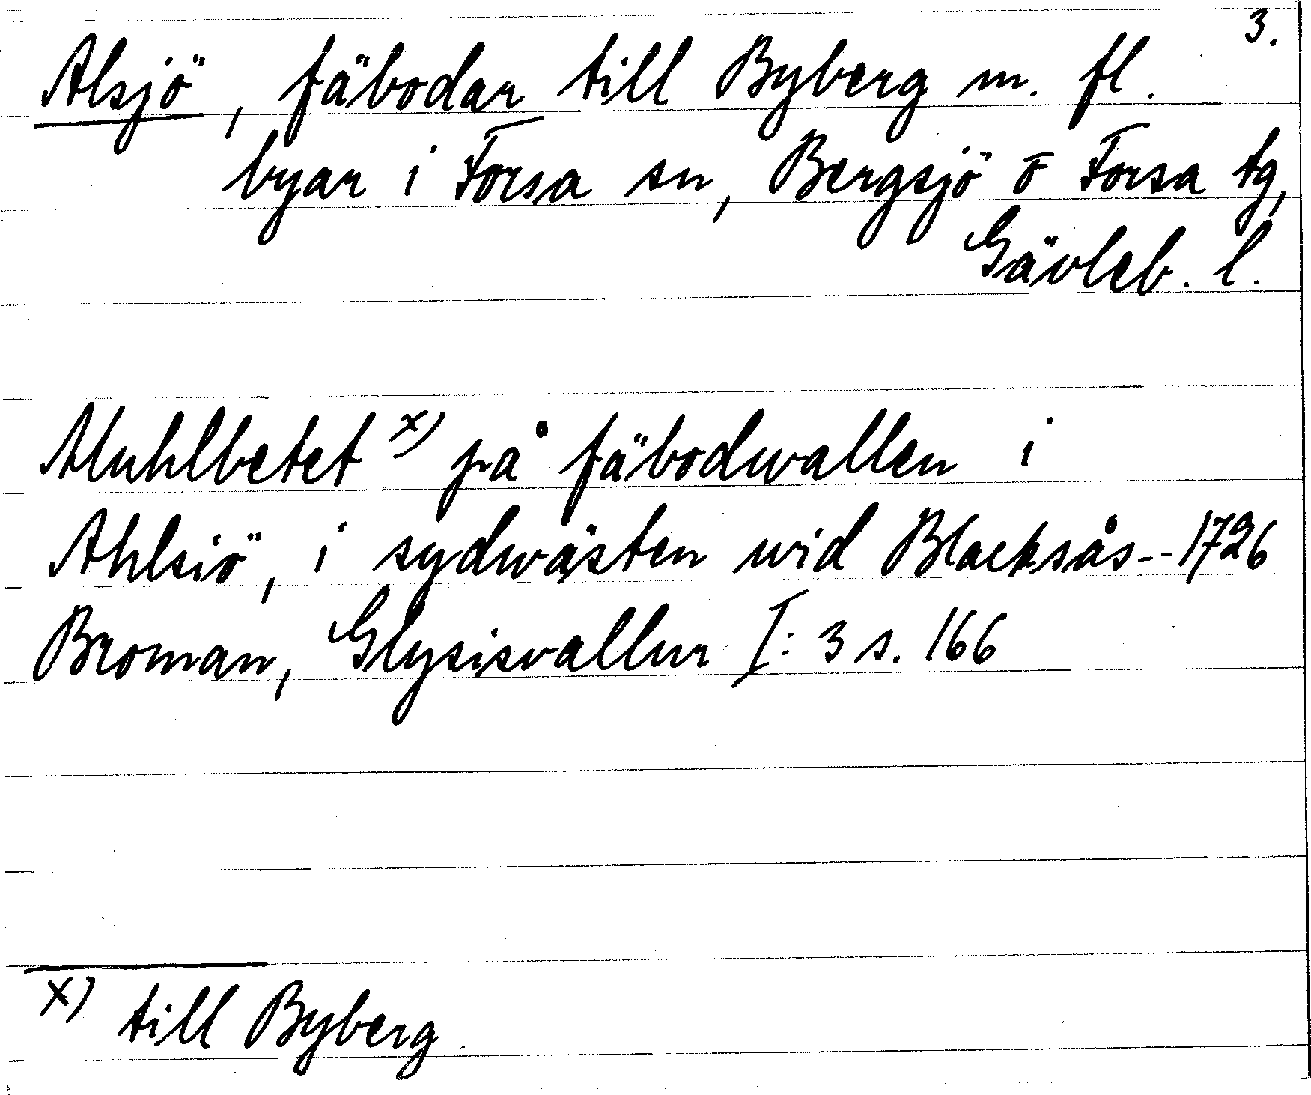 3.
Alsjö, fäbodar till Byberg m. fl.
byar i Forsa sn, Bergsjö o Forsa tg,
Gävleb. l.
Muhlbetet x) på fäbodwallen i
Ahlsiö, i sydwästen wid Blacksås--1726
Broman, Glysisvallur I: 3 s. 166
x) till Byberg